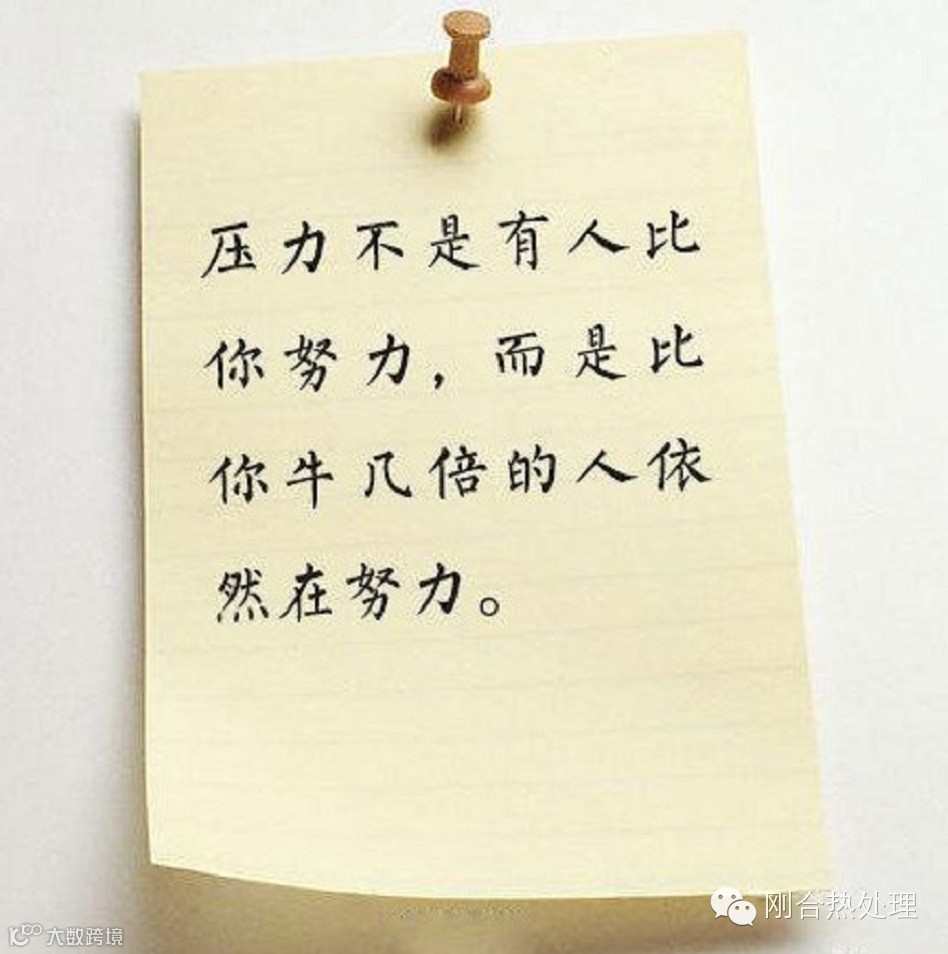 压力不是有人比
你努力，而是比
你牛几倍的人依
然在努力。
刚合热处理
大数跨境